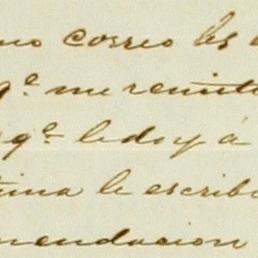 mo correo les
q.e me remitt
q.e le doy á
tina le escribi
mendacion